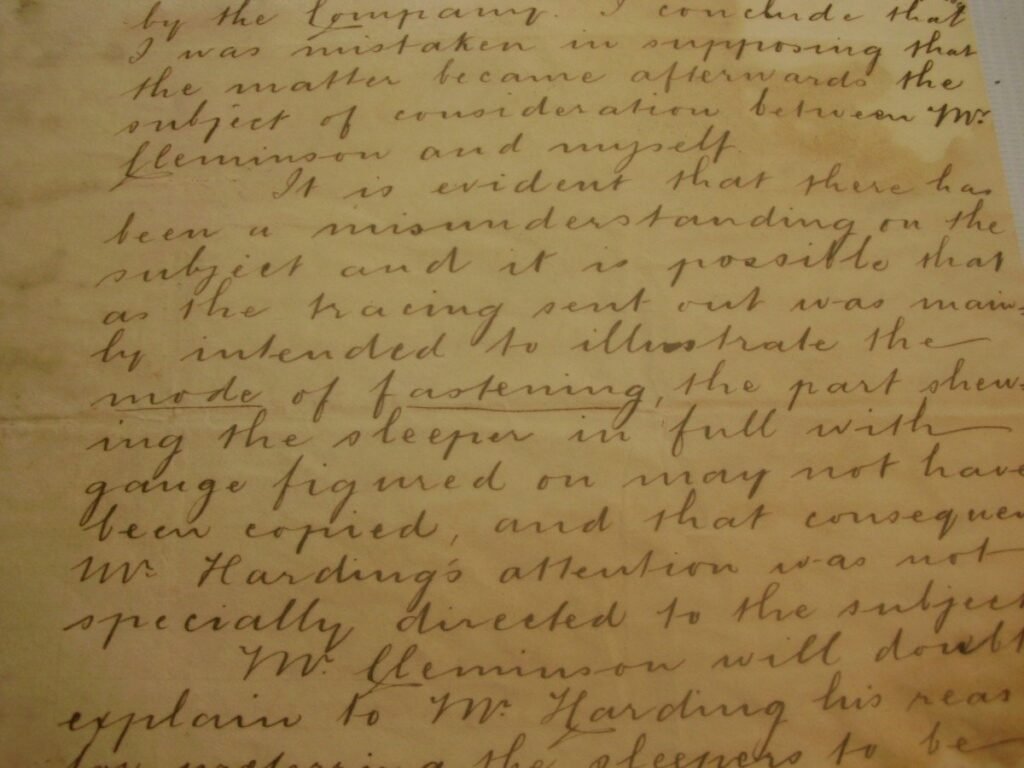 by the Company. I conclude that
I was mistaken in supposing that
the matter became afterwards the
subject of consideration between Mr.
Cleminson and myself.
It is evident that there has
been a misunderstanding on the
subject and it is possible that
as the tracing sent out was main=
ly intended to illustrate the
mode of fastening, the part shew=
ing the sleeper in full with
gauge figured on may not have
been copied, and that consequen
Mr. Harding's attention was not
specially directed to the subject
Mr. Cleminson will doubt
explain to Mr. Harding his reas
for preferring the sleepers to be